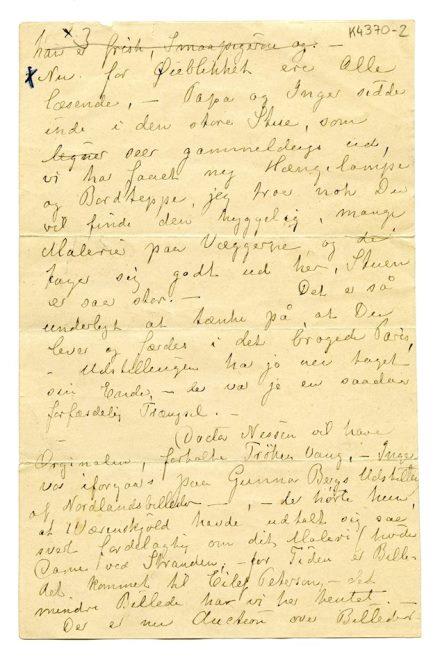 x 3
K4370-2
han er frisk, Smaapigerne og. —
x Nu for Øieblikket ere Alle
læsende, — Papa og Inger sidde
inde i den store Stue, som
ligner seer gammeldags ud,
vi har faaet ny Hængelampe
og Bordteppe, jeg troe nok Du
vil finde den hyggelig, mange
Malerie paa Væggerne, og de
tager sig godt ud her, Stuen
er saa stor. — Det er så
underligt at tænke på at Du
lever og færdes i det brogede Paris,
— Udstillingen ha jo nu taget
sin Ende, — de va jo en saadan
forfærdelig Trængsel. —
— Docter Nessen vil have
Orginalen, fortalte Frøken Vang, — Inger
var iforgaars paa Gunnar Bergs Udstilling
af Nordlandsbilleder —, — der hørte hun,
at Wærenskjold havde udtalt sig saa
svært fordelagtig om dit Maleri hvide
Dame ved Stranden, — for Tiden er Bille-
det kommet til Eilef Peterson, — det
mindre Billede har vi her hentet.
Der er nu Auction over Billeder